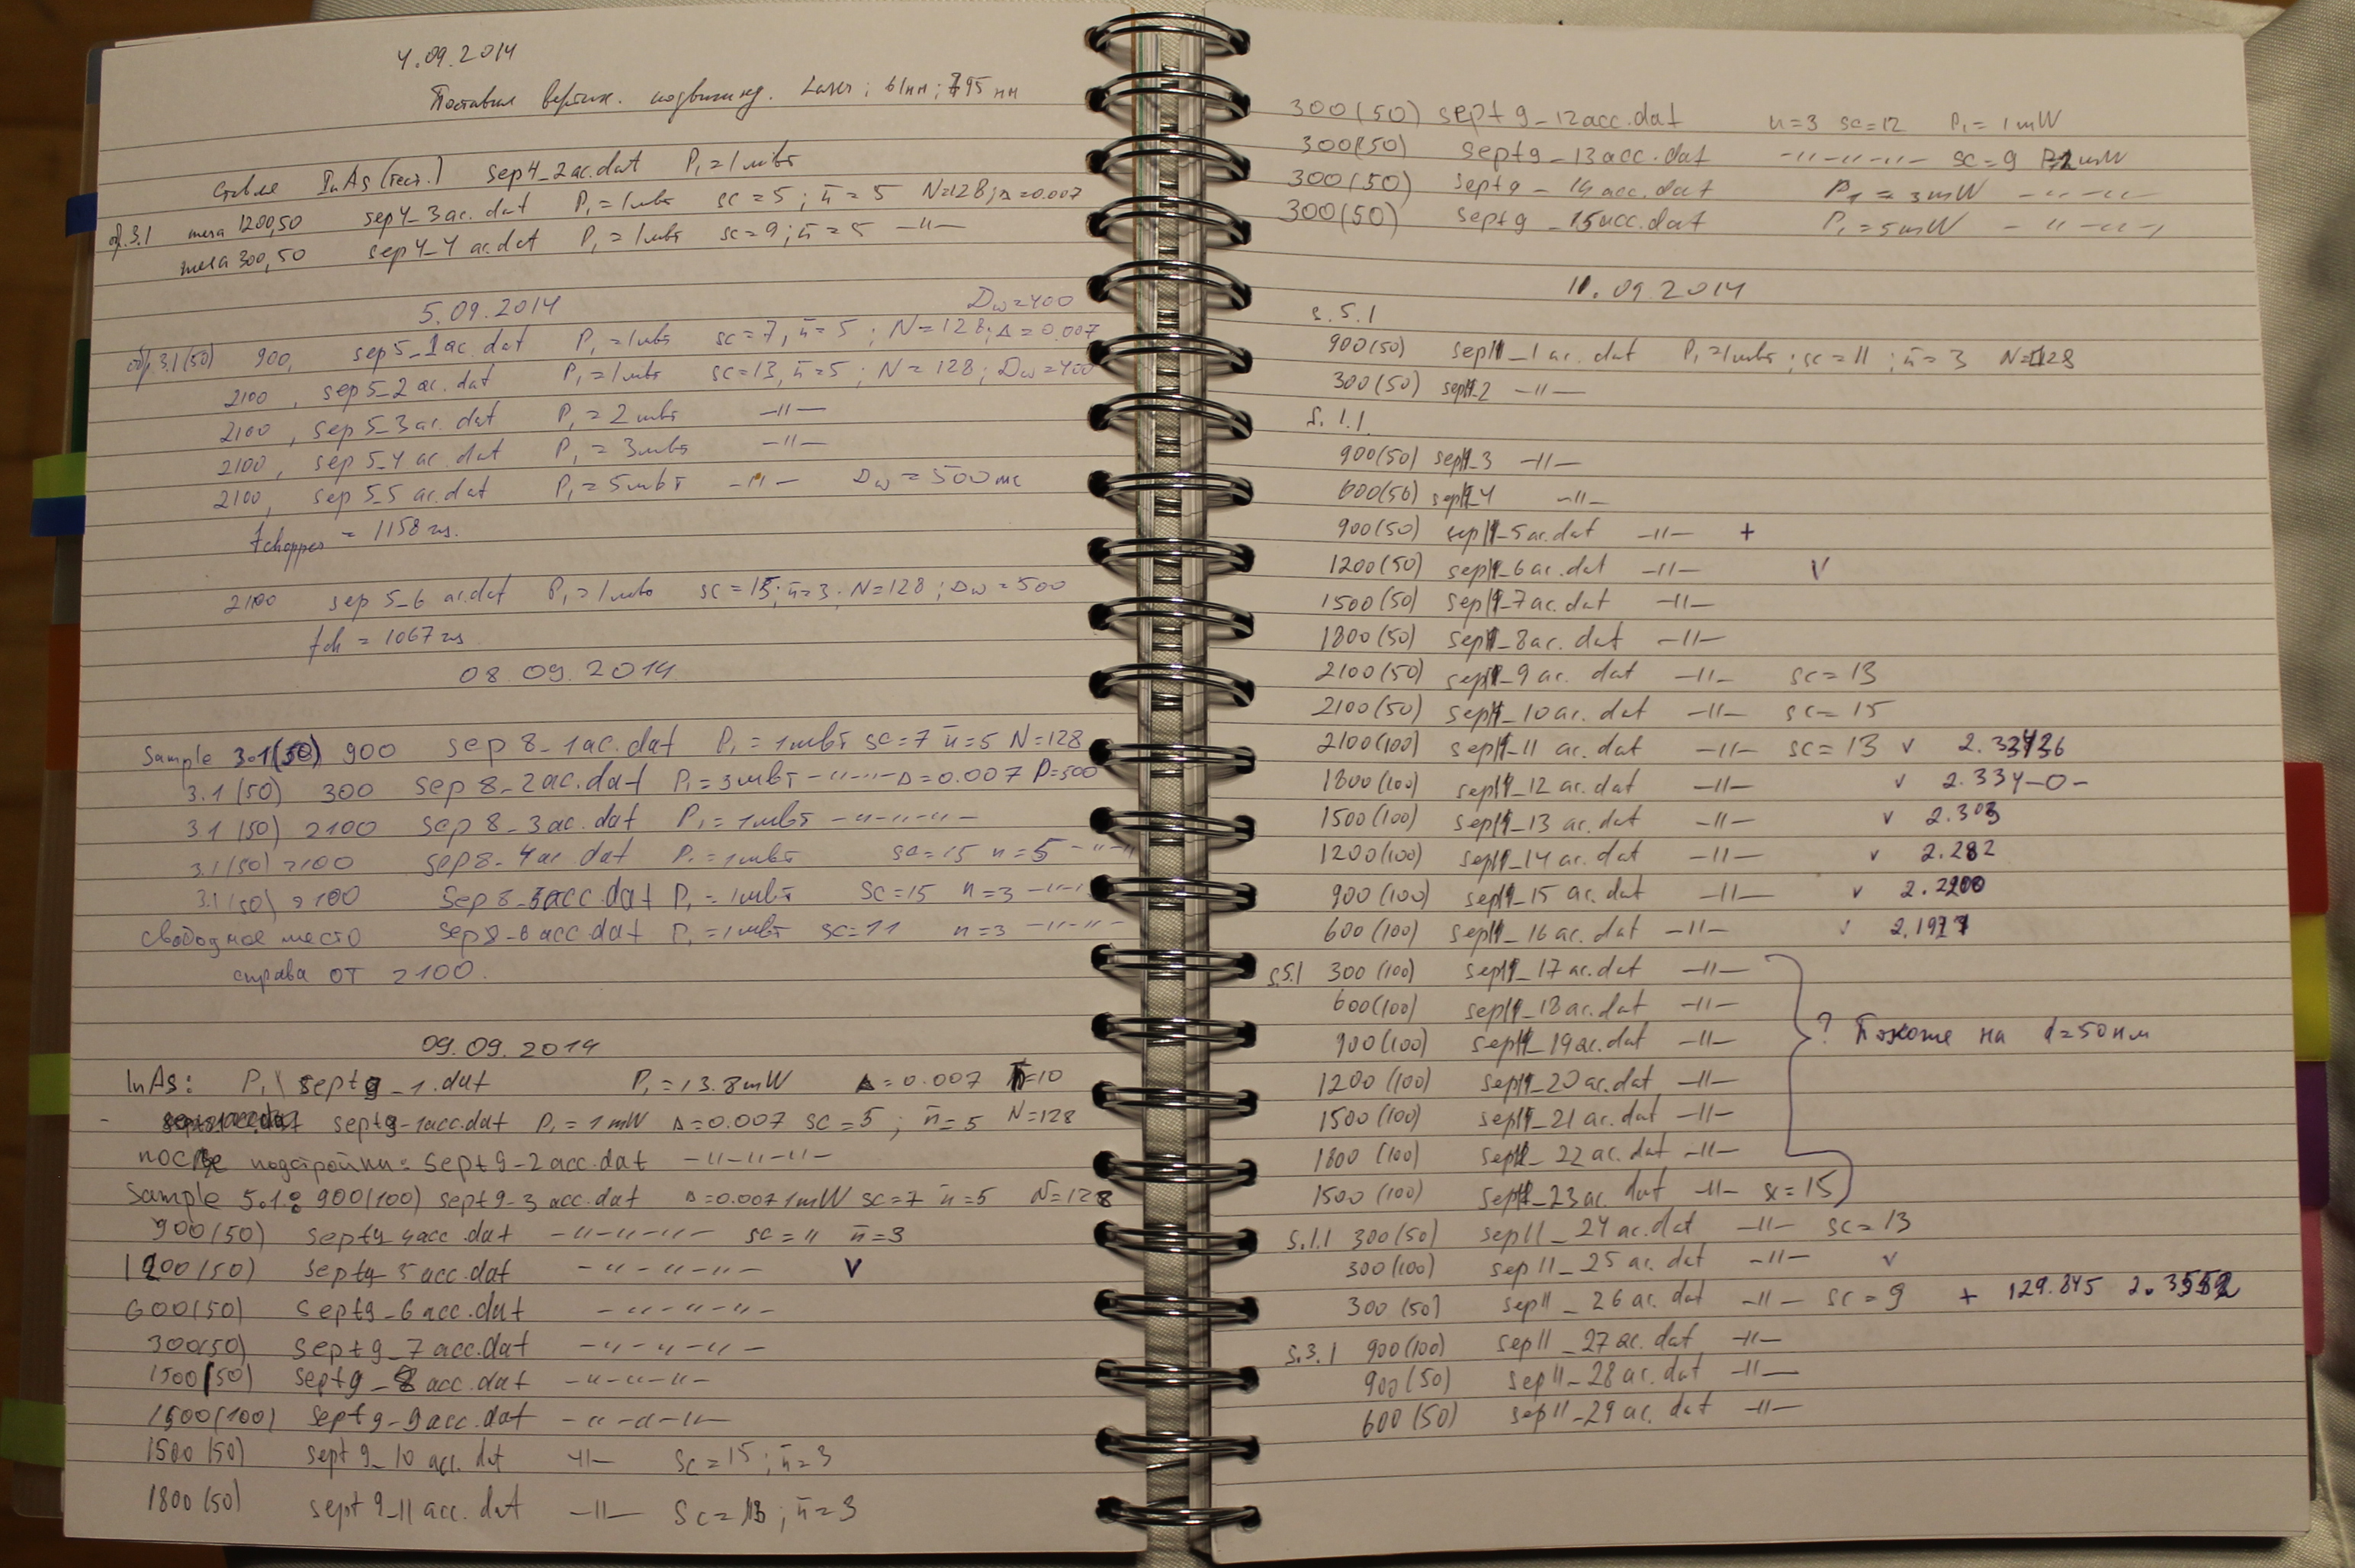 4.09.2014
Поставил вертик. подвижку. Laser; 61нм; 795 нм
ставлю InAs (тест.) sep4_2ac.dat P₁=1мВт
обр.3.1 меза 1200,50 sep4_3ac.dat P₁=1мВт sc=5; n̄=5 N=128; Δ=0.007
меза 300,50 sep4_4 ac.dat P₁=1мВт sc=9; n̄=5 -"-
5.09.2014 Dw=400
обр.3.1(50) 900, sep5_1ac.dat P₁=1мВт sc=7, n̄=5; N=128; Δ=0.007
2100, sep5_2 ac.dat P₁=1мВт sc=13, n̄=5; N=128; Dw=400
2100, sep5_3ac.dat P₁=2мВт -"-
2100, sep5_4 ac.dat P₁=3мВт -"-
2100, sep5_5 ac.dat P₁=5мВт -"- Dw=500мс
fchopper = 1158 гц.
2100 sep5_6 ac.dat P₁=1мВт sc=15; n̄=3; N=128; Dw=500
fch = 1067 гц
08.09.2014
Sample 3.1(50) 900 sep8_1ac.dat P₁=1мВт sc=7 n̄=5 N=128
3.1(50) 300 sep8_2ac.dat P₁=3мВт -"-"- Δ=0.007 P=500
3.1(50) 2100 sep8_3ac.dat P₁=1мВт -"-"-"-
3.1(50) 2100 sep8_4ac.dat P₁=1мВт sc=15 n=5 -"-"
3.1(50) 2100 sep8_5acc.dat P₁=1мВт sc=15 n=3 -"-"
свободное место sep8_6acc.dat P₁=1мВт sc=11 n=3 -"-"-"-
справа от 2100.
09.09.2014
InAs: P₁\ sept9_1.dat P₁=13.8mW Δ=0.007 n̄=10
- sept9-1acc.dat P₁=1mW Δ=0.007 sc=5; n̄=5 N=128
после подстройки: sept9-2acc.dat -"-"-"-
Sample 5.1: 900(100) sept9-3acc.dat Δ=0.007 1mW sc=7 n̄=5 N=128
900(50) sept9-4acc.dat -"-"-"- sc=11 n̄=3
1200(50) sept9-5acc.dat -"-"-"- v
600(50) sept9-6acc.dat -"-"-"-
300(50) sept9_7acc.dat -"-"-"-
1500(50) sept9_8acc.dat -"-"-"-
1500(100) sept9-9acc.dat -"-"-"-
1500(50) sept9_10 acc.dat -"- sc=15; n̄=3
1800(50) sept9_11 acc.dat -"- sc=13; n̄=3
300(50) sept9_12acc.dat n=3 sc=12 P₁=1mW
300(50) sept9_13acc.dat -"-"-"- sc=9 P=2mW
300(50) sept9_14acc.dat P₁=3mW -"-"-
300(50) sept9_15acc.dat P₁=5mW -"-"-
11.09.2014
s.5.1
900(50) sep11_1ac.dat P₁=1мВт; sc=11; n̄=3 N=128
300(50) sep11_2 -"-
S.1.1.
900(50) sep11_3 -"-
600(50) sep11_4 -"-
900(50) sep11_5ac.dat -"- +
1200(50) sep11_6ac.dat -"- v
1500(50) sep11_7ac.dat -"-
1800(50) sep11_8ac.dat -"-
2100(50) sep11_9ac.dat -"- sc=13
2100(50) sep11_10ac.dat -"- sc=15
2100(100) sep11_11 ac.dat -"- sc=13 v
1800(100) sep11_12 ac.dat -"- v 2.334-0-
1500(100) sep11_13 ac.dat -"- v 2.303
1200(100) sep11_14 ac.dat -"- v 2.282
900(100) sep11_15 ac.dat -"- v
600(100) sep11_16 ac.dat -"- v
s.5.1 300(100) sep11_17ac.dat -"-
600(100) sep11_18ac.dat -"-
900(100) sep11_19ac.dat -"- ? Похоже на d=50нм
1200(100) sep11_20ac.dat -"-
1500(100) sep11_21ac.dat -"-
1800(100) sep11_22ac.dat -"-
1500(100) sep11_23ac.dat -"- sc=15
S.1.1 300(50) sep11_24ac.dat -"- sc=13
300(100) sep11_25ac.dat -"- v
300(50) sep11_26ac.dat -"- sc=9 + 129.845
S.3.1 900(100) sep11_27ac.dat -"-
900(50) sep11_28ac.dat -"-
600(50) sep11_29ac.dat -"-